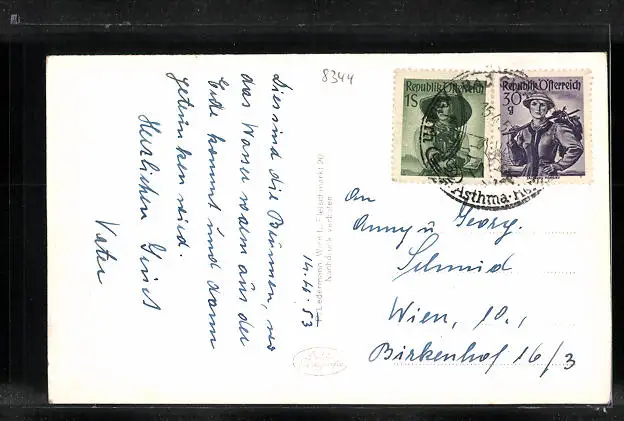 8344
Dies sind die Brunnen, wo
das Wasser warm aus der
Erde kommt und dann
getrunken wird.
Herzlichen Gruß
Vater
14. 4. 53
H. Ledermann, Wien I., Fleischmarkt 20
Nachdruck verboten
Republik Österreich
1S
Republik Österreich
30
g
Asthma
An
Anny u. Georg
Schmid
Wien, 10.,
Birkenhof 16/3